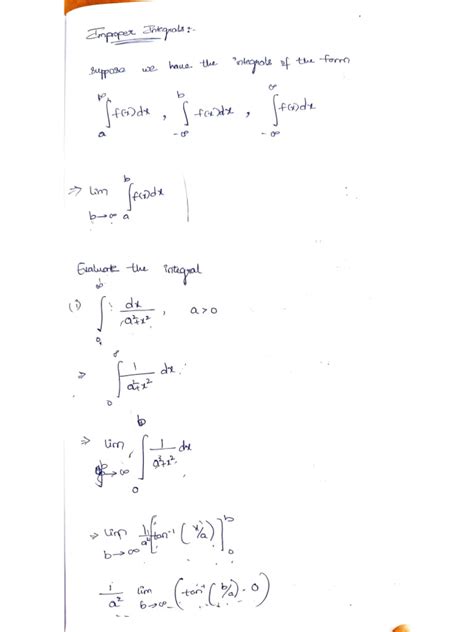 Improper Integrals:-
suppose we have the integrals of the form
∫_a^∞ f(x)dx , ∫_{-∞}^b f(x)dx , ∫_{-∞}^∞ f(x)dx
⇒ lim_{b→∞} ∫_a^b f(x)dx
Evaluate the integral
(i) ∫_0^∞ dx/(a²+x²) , a>0
⇒ ∫_0^∞ 1/(a²+x²) dx.
⇒ lim_{b→∞} ∫_0^b 1/(a²+x²) dx
⇒ lim_{b→∞} 1/a² [tan⁻¹(x/a)]_0^b
1/a² lim_{b→∞} (tan⁻¹(b/a) - 0)